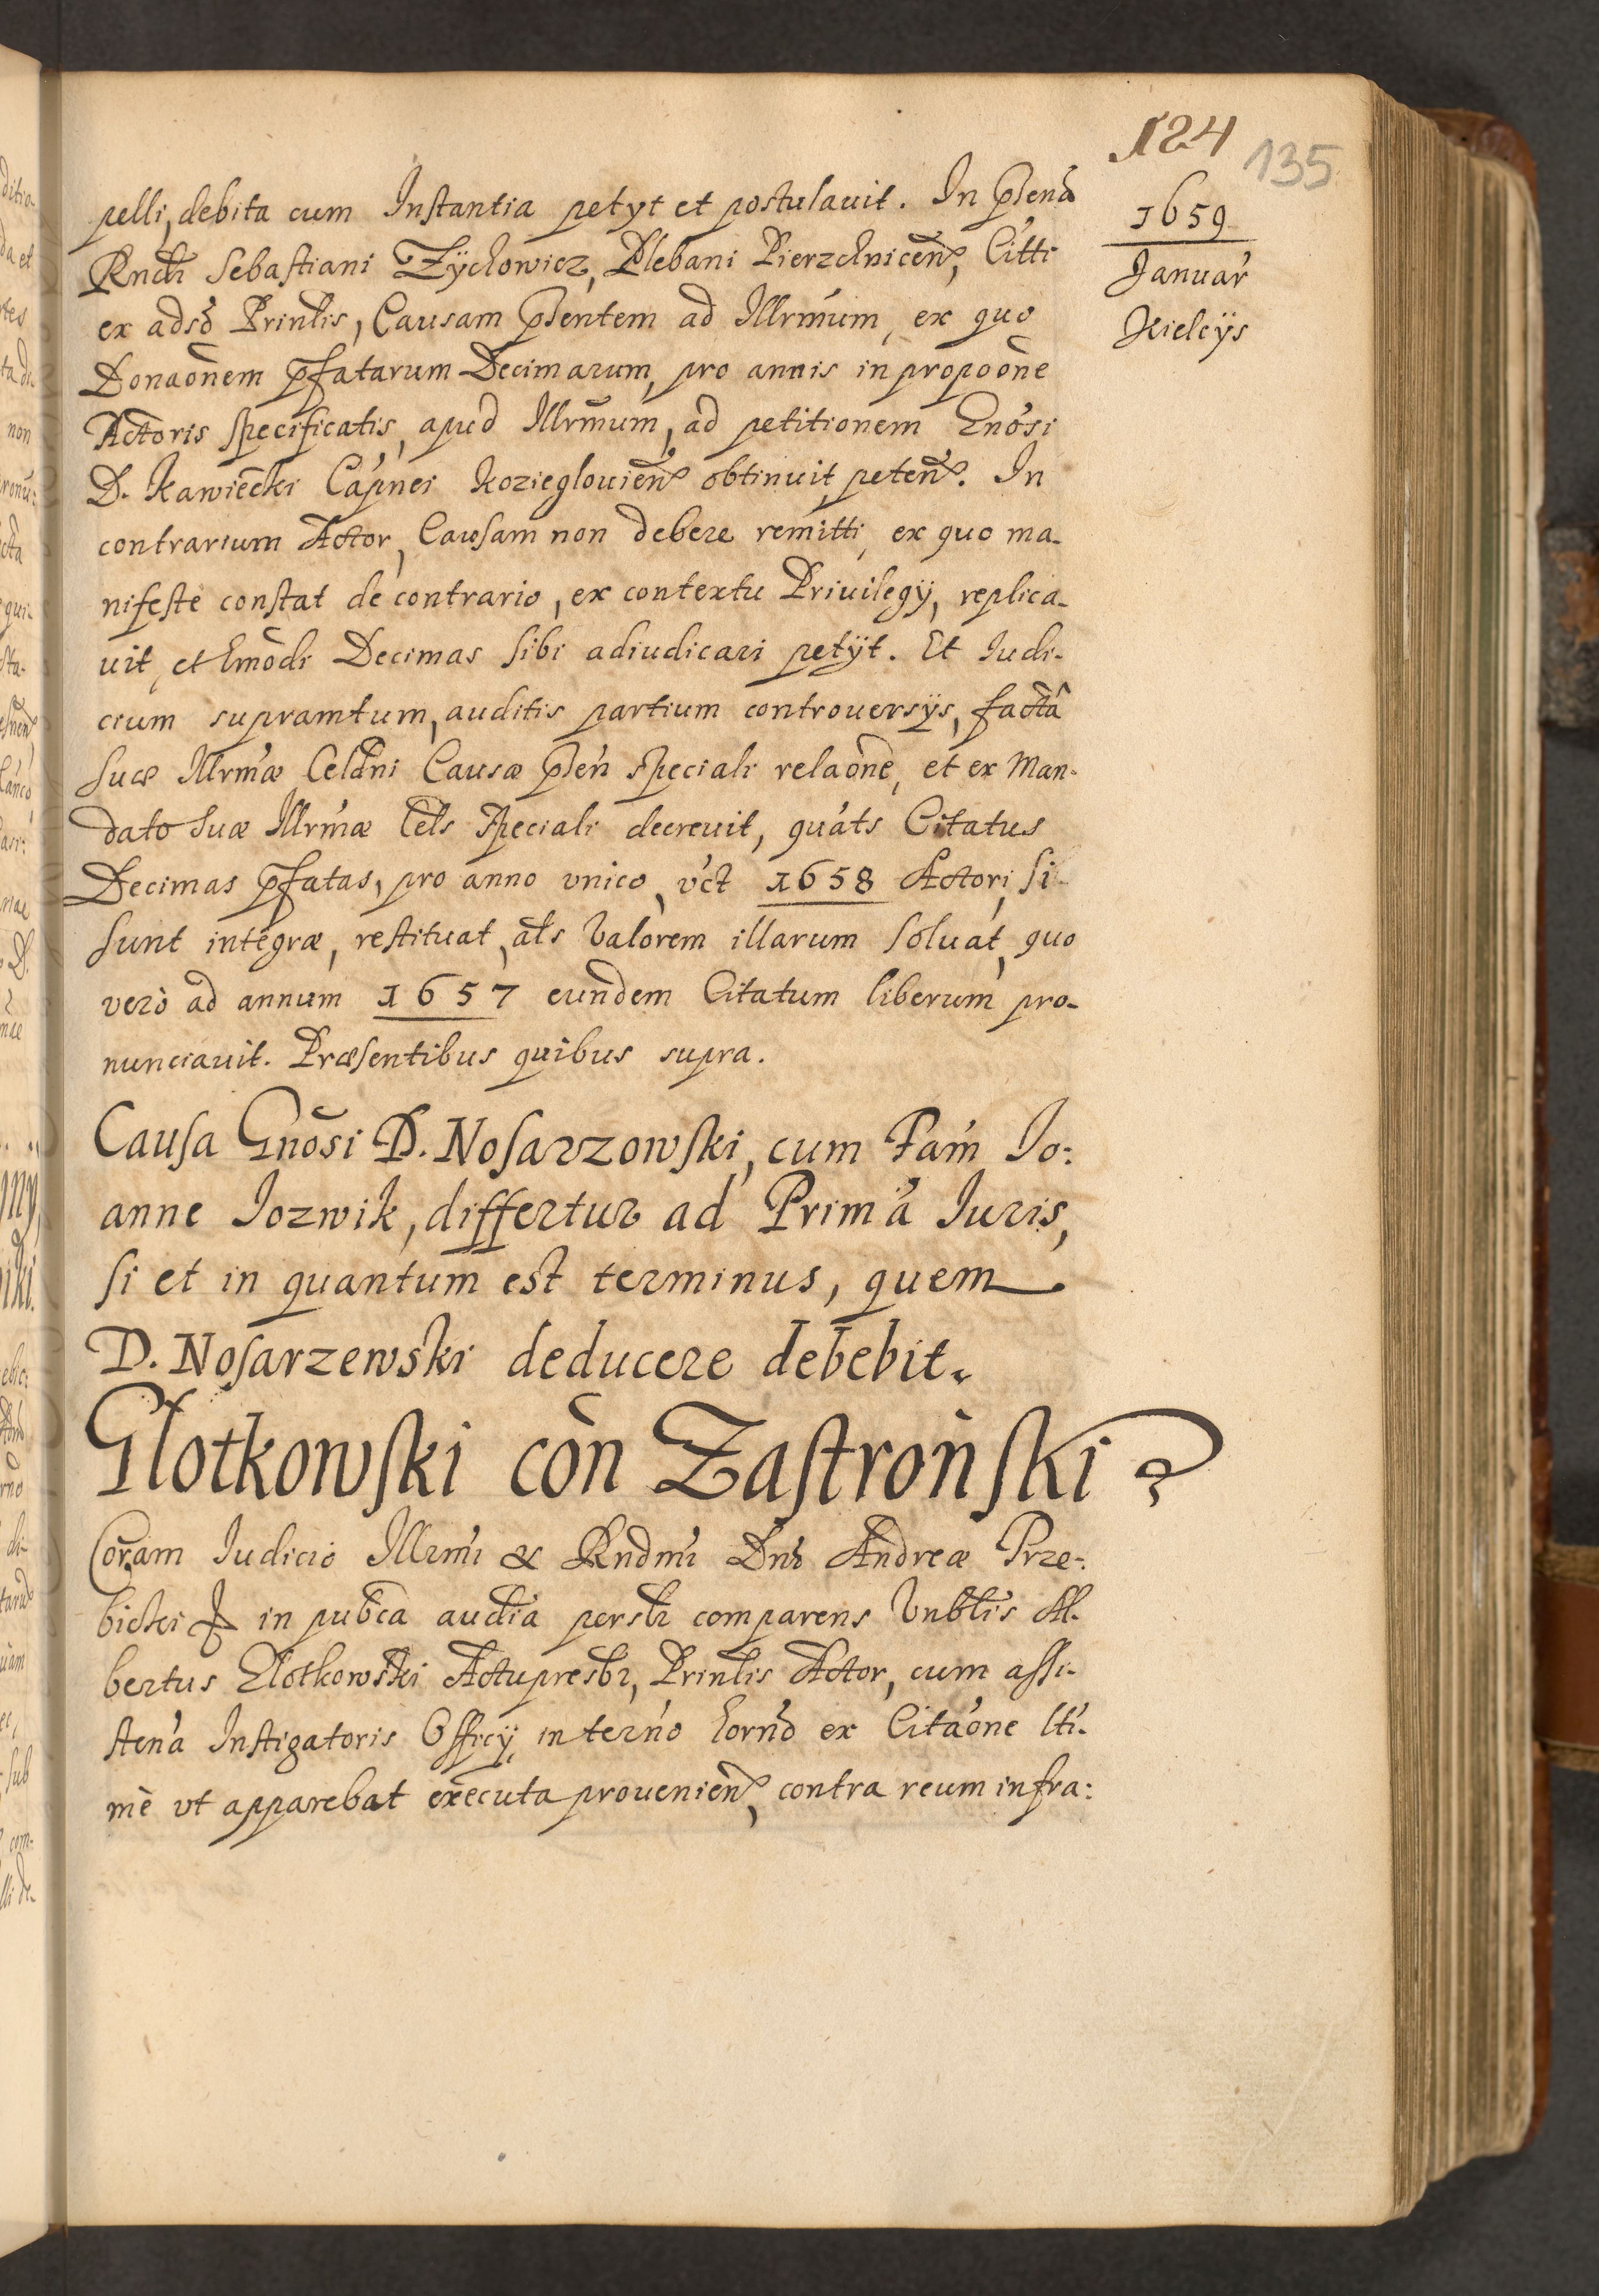 124 135
1659
Januar̃
Kielcÿs
pelli, debita cum Instantia petyt et postulauit. In pñsenã
Rndi Sebastiani Zÿchowicz, Plebani Pierzchniceñ, Citti
ex adsõ Prinlis, Causam pñsentem ad Illrmum, ex quo
Donaõnem p̃fatarum Decimarum, pro annis in propoõne
Actoris specificatis, apud Illrmum, ad petitionem Gnõsi
D. Kawiecki Cap̃nei Kozieglouieñ obtinuit, peteñ. In
contrarium Actor, Causam non debere remitti, ex quo ma-
nifeste constat de contrario, ex contextu Priuilegÿ, replica-
uit, et hmõdi Decimas sibi adiudicari petÿt. Et Iudi-
cium supramtum, auditis partium controuersÿs, factâ
suæ Illrmæ Celdni Causæ pñseñ speciali relaõne, et ex Man-
dato suæ Illrmæ Cels speciali decreuit, quãts Citatus
Decimas p̃fatas, pro anno vnico, vct 1658 Actori, si
sunt integræ, restituat, als valorem illarum soluat, quo
verò ad annum 1657 eundem Citatum liberum pro-
nunciauit. Præsentibus quibus supra.
Causa Gnõsi D. Nosarzowski, cum Fam̃ Io:
anne Iozwik, differtur ad Primã Iuris,
si et in quantum est terminus, quem
D. Nosarzewski deducere debebit.
Glotkowski cõn Zastroński
Coram Iudicio Illrmi & Rndmi Dnĩ Andreæ Trze-
bicki in pubca audia persłr comparens Vnbłis Al-
bertus Zlotkowski Actupresbr, Prinlis Actor, cum assi-
stenã Instigatoris Officÿ, in terño horñõ ex Citaõne lti-
mè vt apparebat executa prouenieñ, contra reum infra: